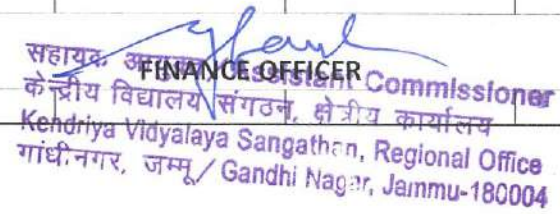 सहायक आयुक्त / Assistant Commissioner
FINANCE OFFICER
केन्द्रीय विद्यालय संगठन, क्षेत्रीय कार्यालय
Kendriya Vidyalaya Sangathan, Regional Office
गांधीनगर, जम्मू / Gandhi Nagar, Jammu-180004